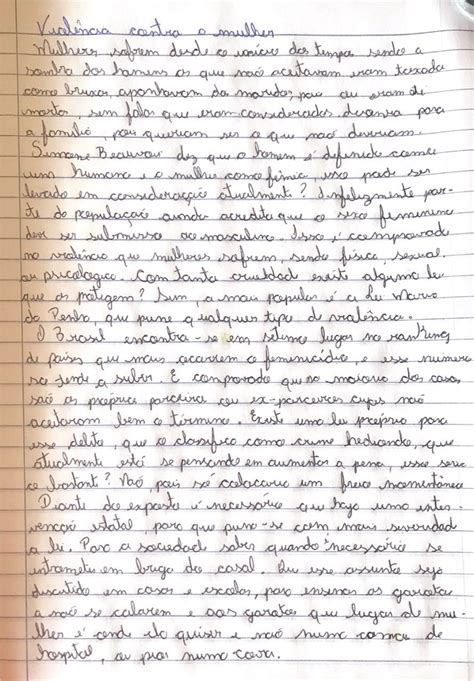 Violência contra a mulher
Mulheres sofrem desde o início dos tempos sendo a
sombra dos homens as que não aceitavam eram taxada
como bruxas, apanhavam do marido, pai ou eram de
mortas, sem falar que eram consideradas desonra para
a família, pois queriam ser o que não deveriam.
Simone Beauvoir diz que o homem é definido como
uma humano e a mulher como fêmia, isso pode ser
levado em consideração atualmente? Infelizmente par-
te da população ainda acredita que o sexo femenino
deve ser submisso ao masculino. Isso é comprovado
na violência que mulheres sofrem, sendo física, sexual
ou psicológica. Com tanta crueldad existe alguma lei
que as protegem? Sim, a mais popular é a Lei Maria
da Penha, que pune qualquer tipo de violência.
O Brasil encontra-se em sétimo lugar no ranking
de países que mais ocorrem o feminicídio, e esse número
só tende a subir. É comprovado que na maioria dos casos
são os próprios parceiros ou ex-parceiros cujos não
aceitaram bem o término. Existe uma lei própria para
esse delito, que o classifica como crime hediondo, que
atualmente está se pensando em aumentar a pena, isso seria
o bastant? Não, pois só colocaria um freio momentâneo
Diante do exposto é necessário que haja uma inter-
venção estatal, para que puna-se com mais severidad
a lei. Para a sociedad saber quando necessário se
intrometer em briga de casal. Que esse assunto seja
discutido em casas e escolas, para ensinar as garotas
a não se calarem e aos garotos que lugar de mu-
lher é onde ela quiser e não numa cama de
hospital, ou pior numa cova.